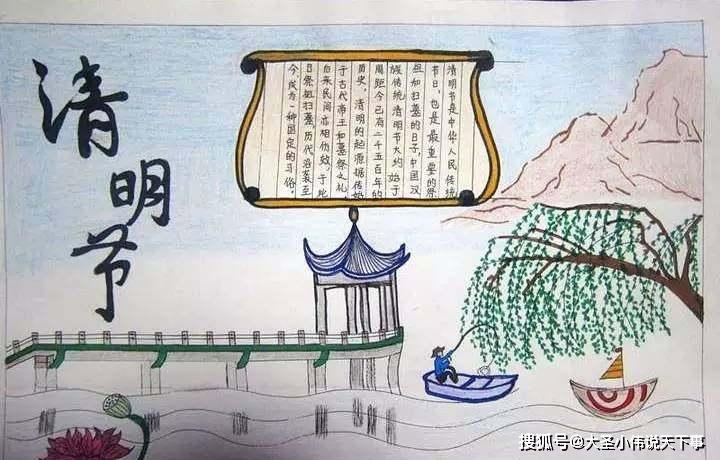 清明节
清明节是中华人民传统
节日,也是最重要的祭
祖和扫墓的日子.中国汉
族传统清明节大约始于
周距今已有二千五百年的
历史,清明的起源据传始
于古代帝王和墓祭之礼
后来民间亦相仿效,于此
日祭祖扫墓,历代沿袭至
今成为一种固定的习俗。
搜狐号@大圣小伟说天下事